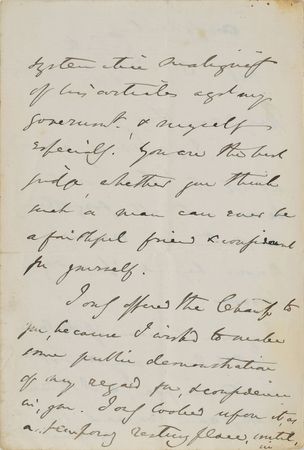 systematic malignity
of his articles agst my
government, & myself
especially. You are the best
judge, whether you think
such a man can ever be
a faithful friend & confidant
for yourself.
I only offered the Chanp to
you, because I wished to make
some public demonstration
of my regard for, & confidence
in, you. I only looked upon it, as
a temporary resting place, until,
in